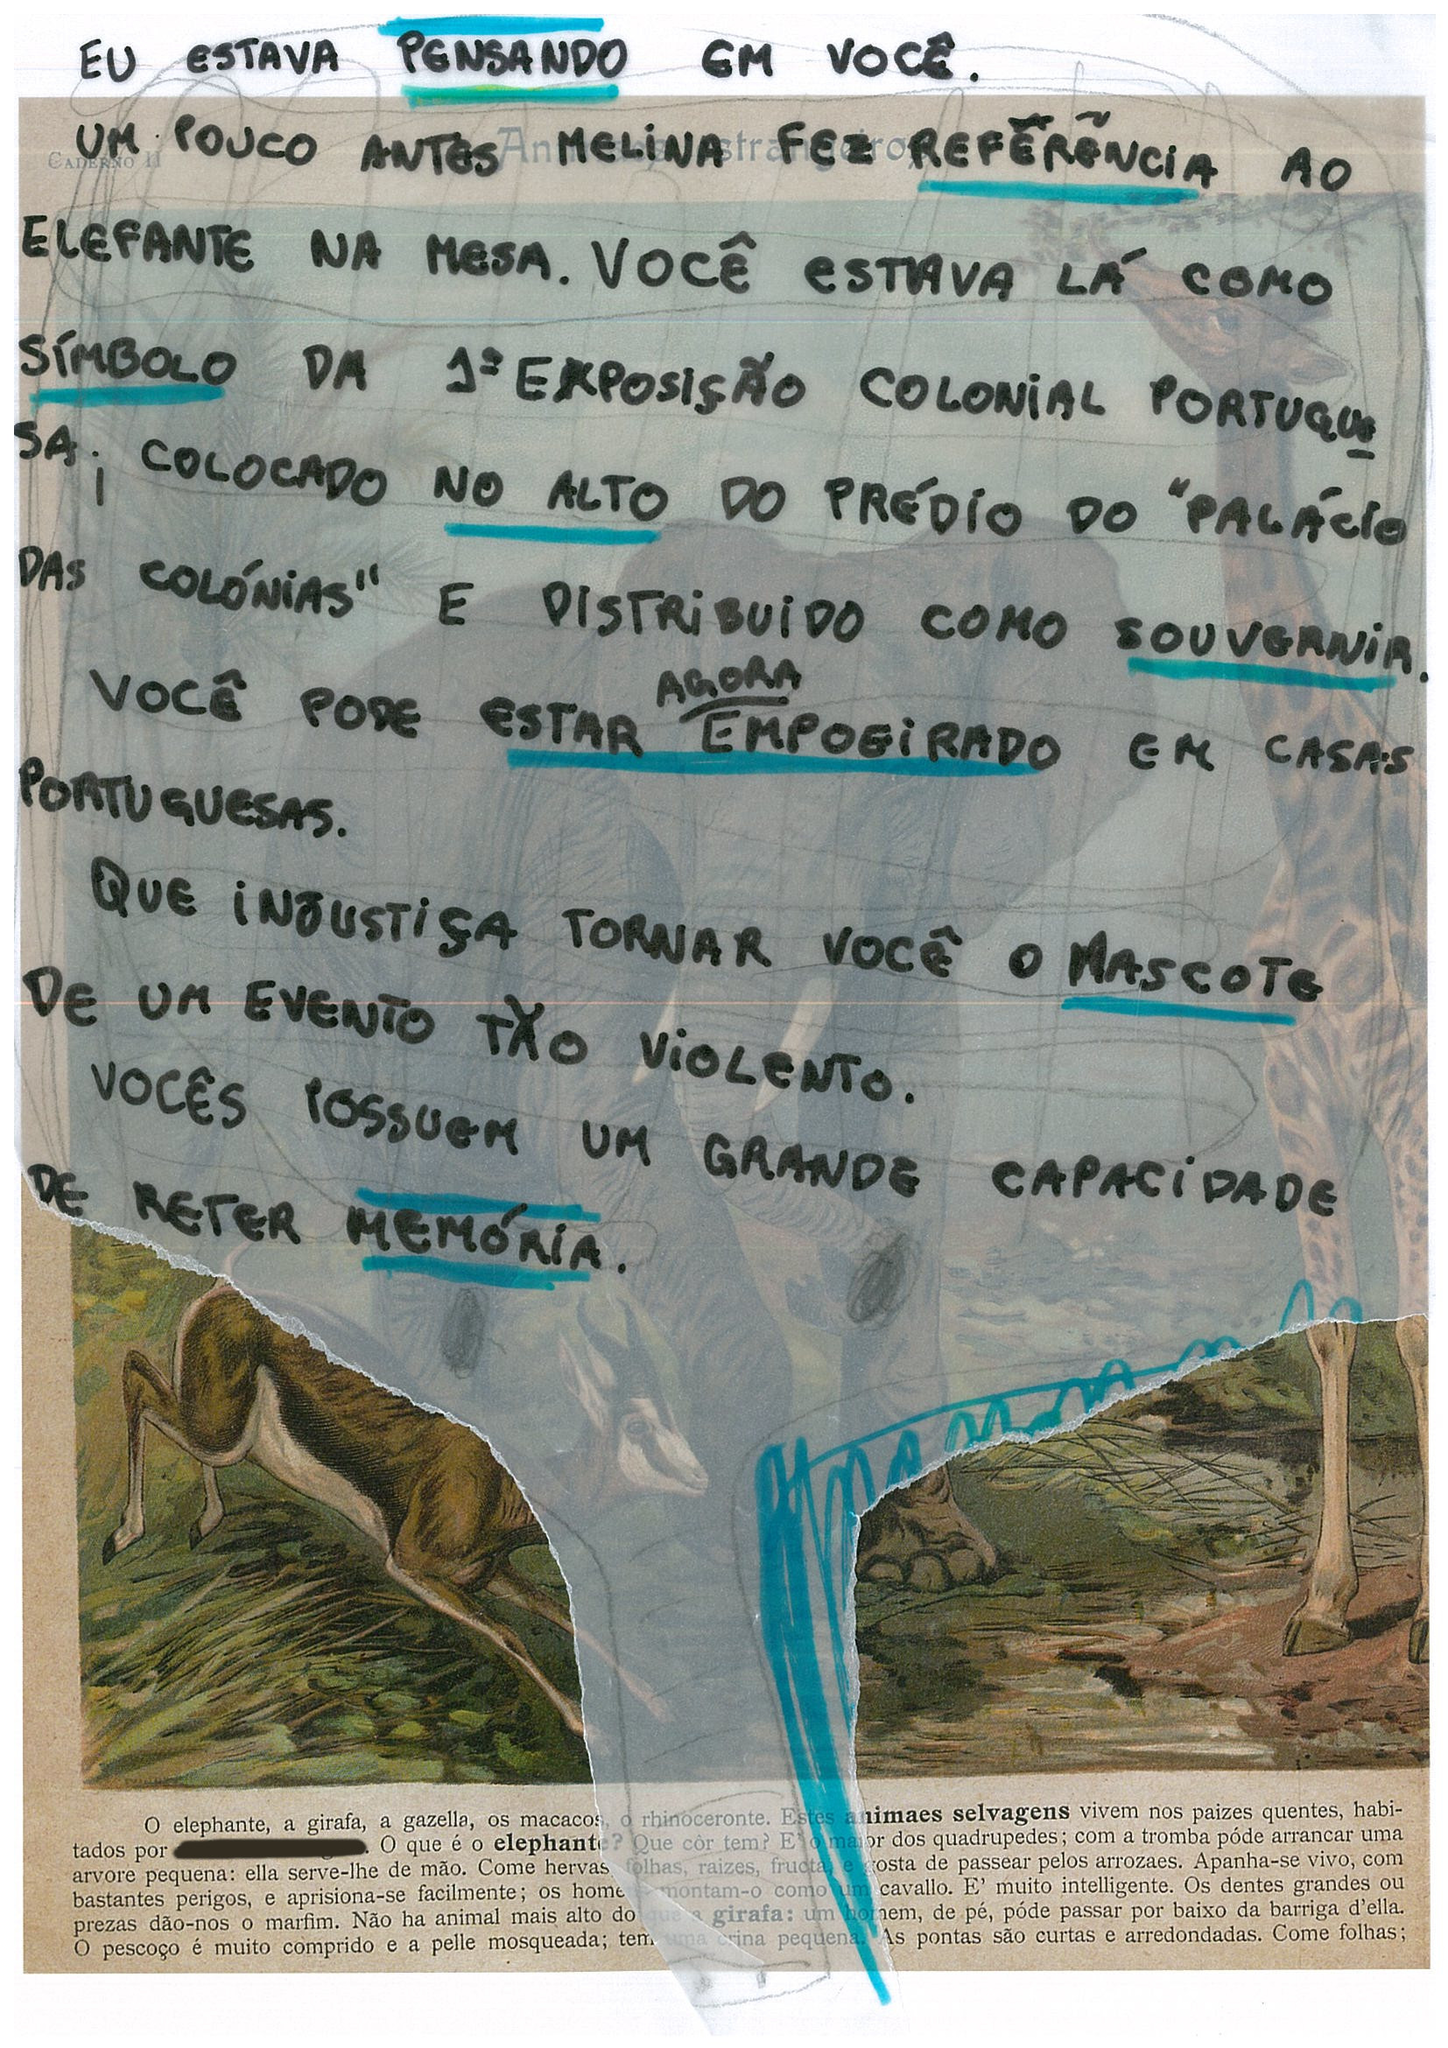 EU ESTAVA PENSANDO EM VOCÊ.
CADERNO II
UM POUCO ANTES MELINA FEZ REFÊRÊNCIA AO
ELEFANTE NA MESA. VOCÊ ESTAVA LÁ COMO
SÍMBOLO DA 1ª EXPOSIÇÃO COLONIAL PORTUGUE
SA; COLOCADO NO ALTO DO PRÉDIO DO "PALÁCIO
DAS COLÓNIAS" E DISTRIBUIDO COMO SOUVERNIR.
AGORA
VOCÊ PODE ESTAR EMPOEIRADO EM CASAS
PORTUGUESAS.
QUE INJUSTIÇA TORNAR VOCÊ O MASCOTE
DE UM EVENTO TÃO VIOLENTO.
VOCÊS POSSUEM UM GRANDE CAPACIDADE
DE RETER MEMÓRIA.
O elephante, a girafa, a gazella, os macacos, o rhinoceronte. Estes animaes selvagens vivem nos paizes quentes, habi-
tados por . O que é o elephante? Que côr tem? E' o maior dos quadrupedes; com a tromba póde arrancar uma
arvore pequena: ella serve-lhe de mão. Come hervas, folhas, raizes, fructa, e gosta de passear pelos arrozaes. Apanha-se vivo, com
bastantes perigos, e aprisiona-se facilmente; os homens montam-o como um cavallo. E' muito intelligente. Os dentes grandes ou
prezas dão-nos o marfim. Não ha animal mais alto do que a girafa: um homem, de pé, póde passar por baixo da barriga d'ella.
O pescoço é muito comprido e a pelle mosqueada; tem uma crina pequena. As pontas são curtas e arredondadas. Come folhas;